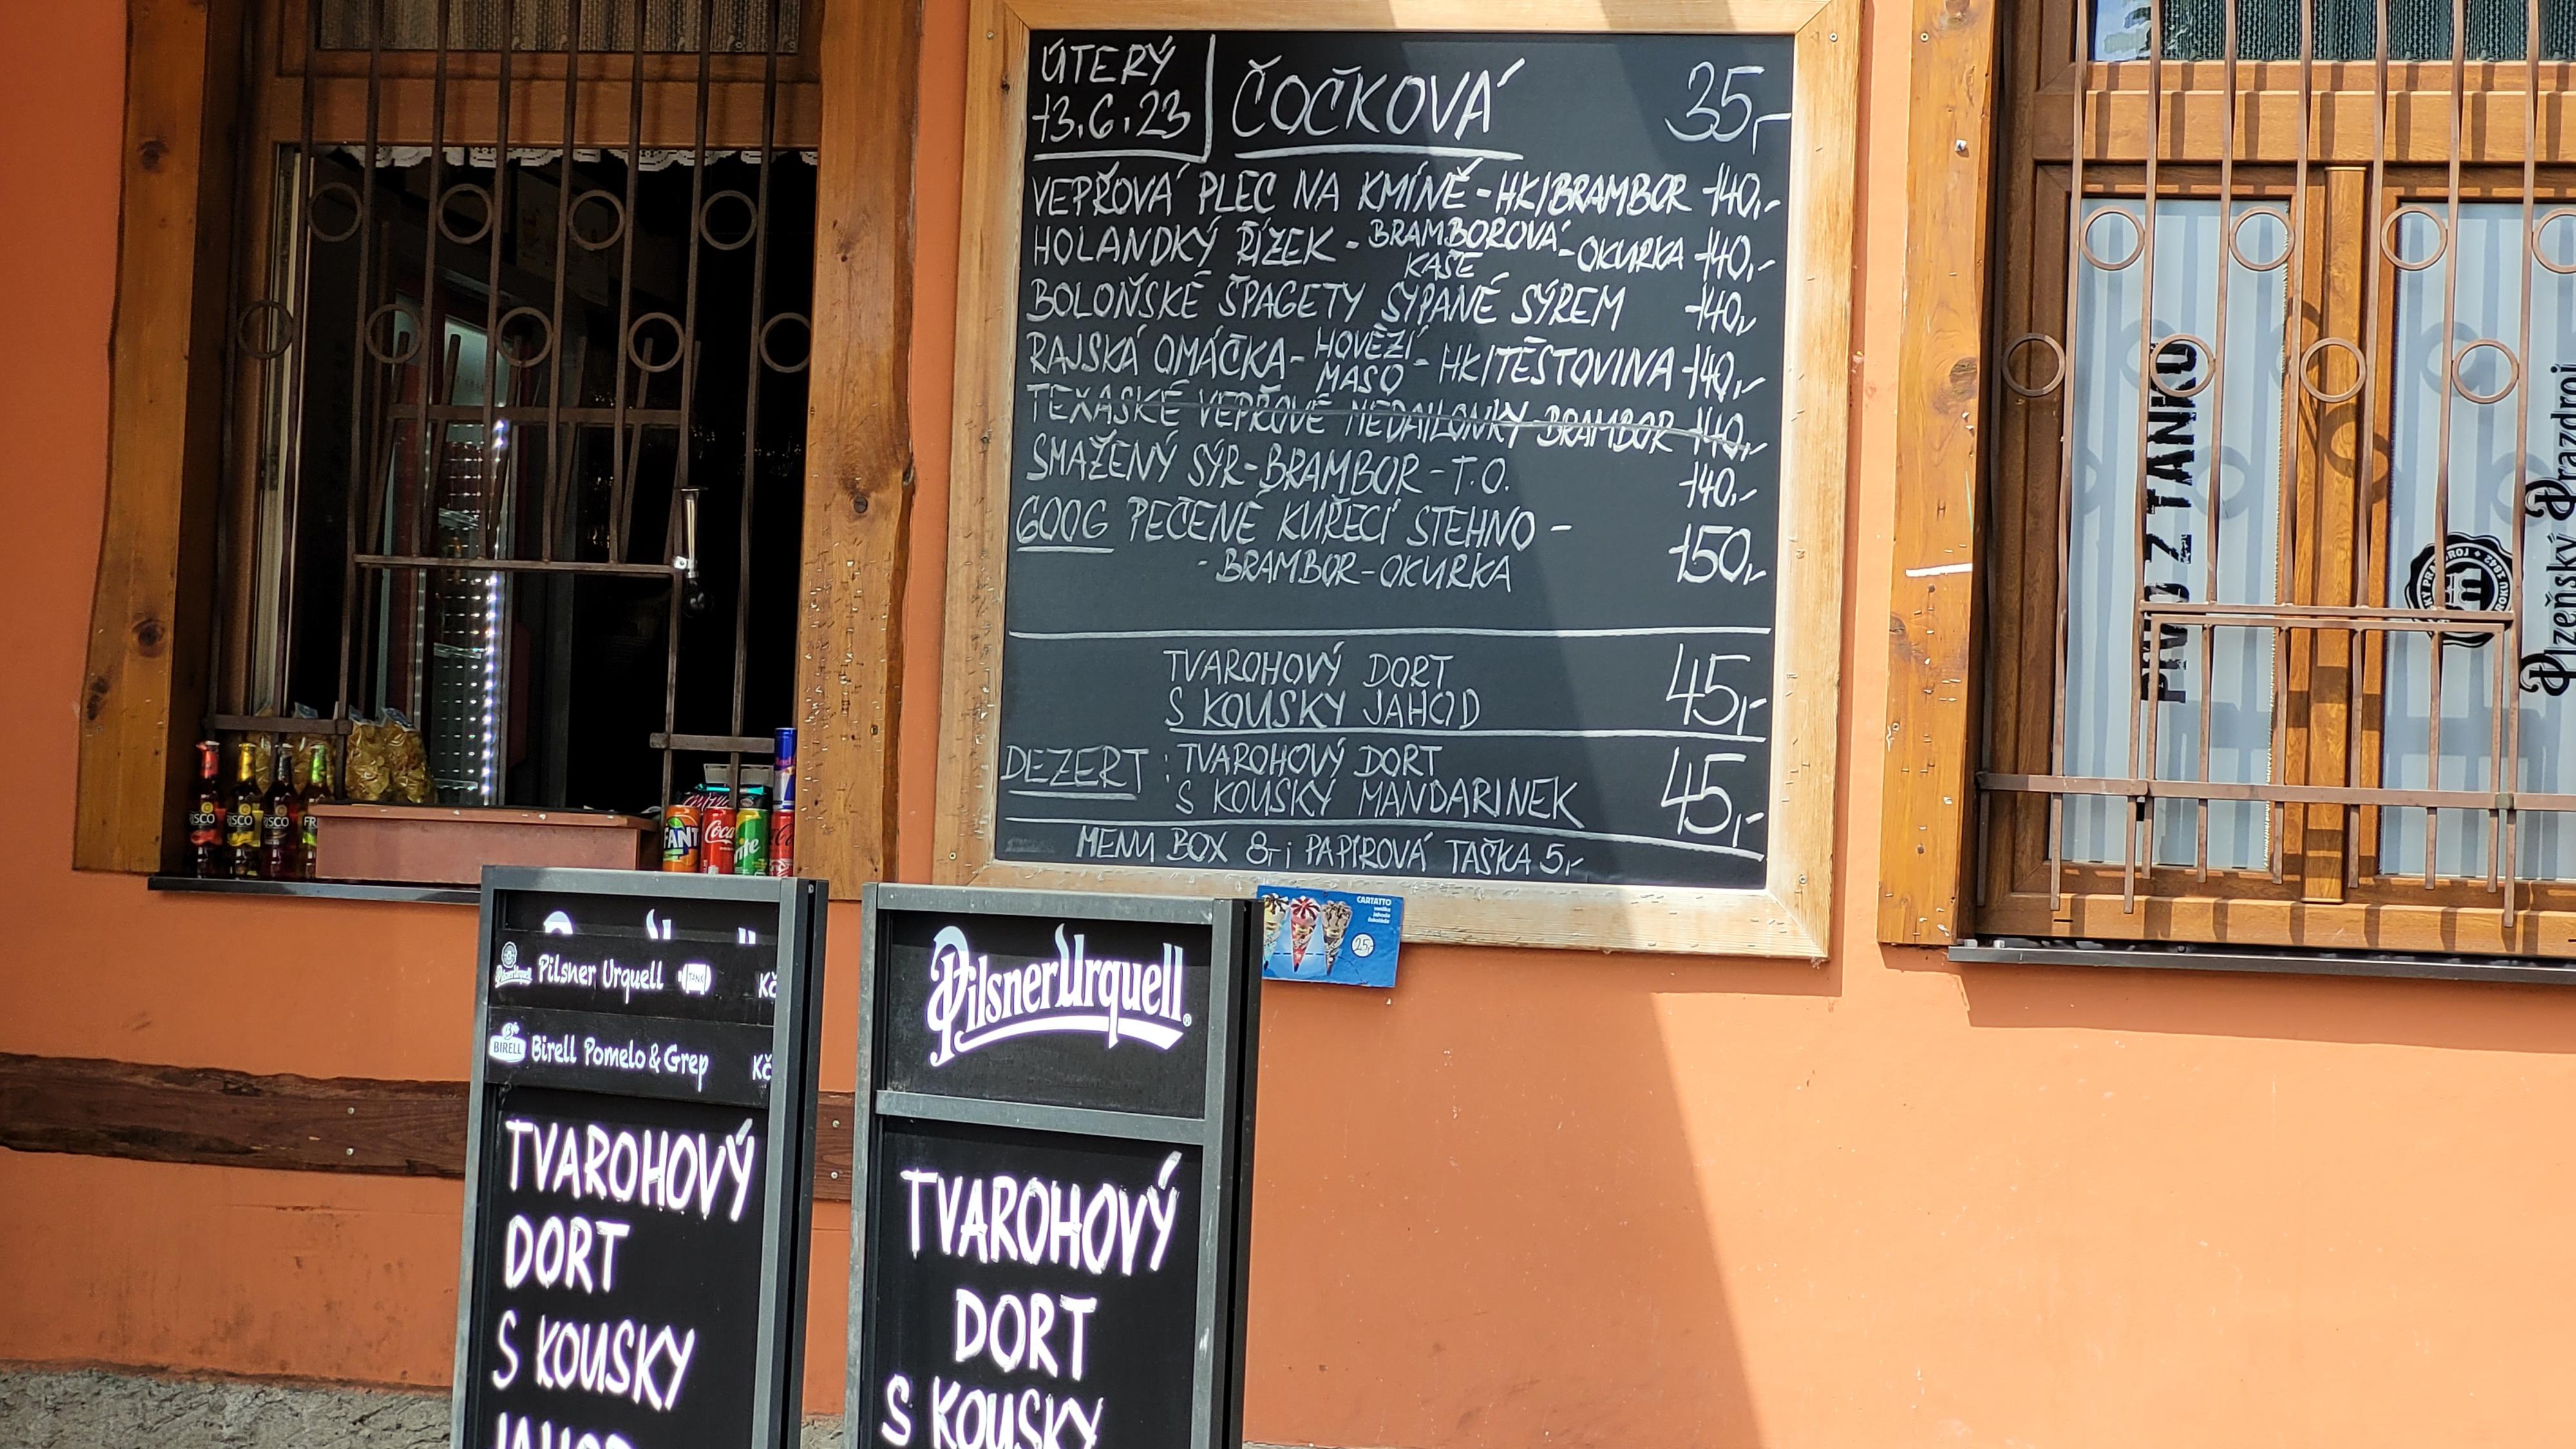 ÚTERÝ
13.6.23
ČOČKOVÁ 35,-
VEPŘOVÁ PLEC NA KMÍNĚ - HK/BRAMBOR 140,-
HOLANDKÝ ŘÍZEK - BRAMBOROVÁ KAŠE - OKURKA 140,-
BOLOŇSKÉ ŠPAGETY SYPANÉ SÝREM 140,-
RAJSKÁ OMÁČKA - HOVĚZÍ MASO - HK/TĚSTOVINA 140,-
TEXASKÉ VEPŘOVÉ MEDAILONKY BRAMBOR 140,-
SMAŽENÝ SÝR - BRAMBOR - T.O. 140,-
600G PEČENÉ KUŘECÍ STEHNO -
- BRAMBOR - OKURKA 150,-
TVAROHOVÝ DORT
S KOUSKY JAHOD 45,-
DEZERT : TVAROHOVÝ DORT
S KOUSKY MANDARINEK 45,-
MENU BOX 8,- ; PAPÍROVÁ TAŠKA 5,-
PIVO Z TANKU
Plzeňský Prazdroj
CARTATTO
25,-
FRISCO
FRISCO
FRISCO
FANTA
Coca
Sprite
Pilsner Urquell TANK Kč
BIRELL
Birell Pomelo & Grep Kč
TVAROHOVÝ
DORT
S KOUSKY
JAHOD
Pilsner Urquell
TVAROHOVÝ
DORT
S KOUSKY